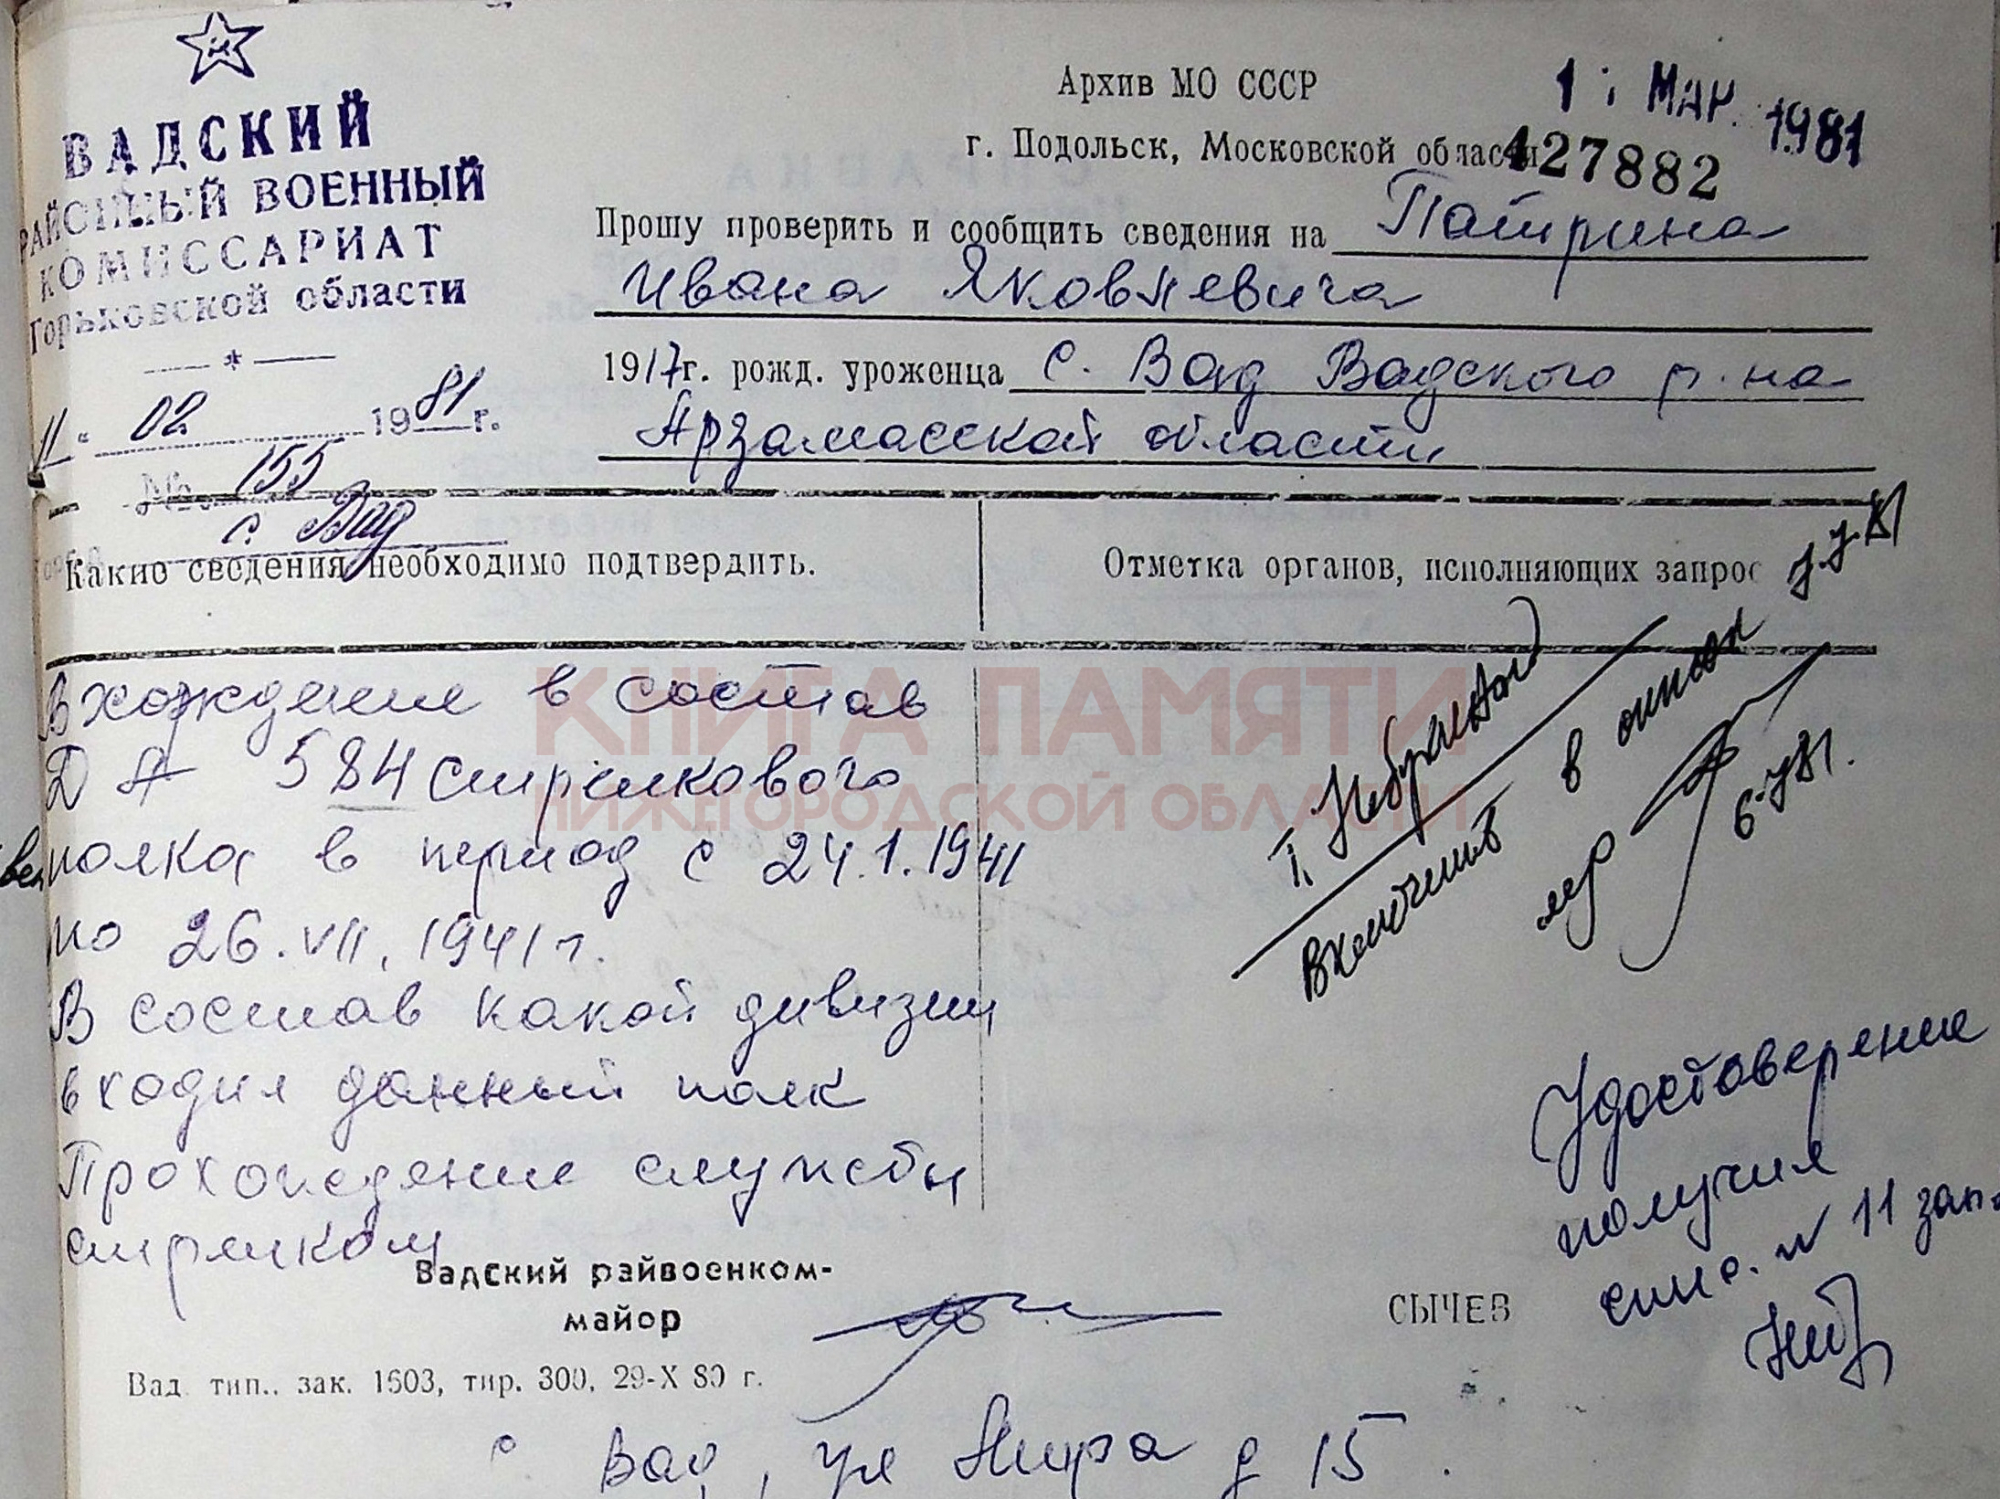 ВАДСКИЙ
РАЙОННЫЙ ВОЕННЫЙ
КОМИССАРИАТ
Горьковской области
11 " 02 1981 г.
№ 155
с. Вад
Архив МО СССР
г. Подольск, Московской области
1 МАР. 1981
427882
Прошу проверить и сообщить сведения на Патрина
Ивана Яковлевича
1917 г. рожд. уроженца с. Вад Вадского р-на
Арзамасской области
Какие сведения необходимо подтвердить.
Отметка органов, исполняющих запрос
Вхождение в состав
ДА 584 стрелкового
полка в период с 24.1.1941
по 26.VII.1941 г.
В состав какой дивизии
входил данный полк
Прохождение службы
стрелком
включить в
Удостоверение
получил
спис. № 11 зап.
Вадский райвоенком-
майор
СЫЧЕВ
Вад. тип., зак. 1603, тир. 300, 29-X 80 г.
с Вад, ул Мира д 15.
КНИГА ПАМЯТИ
НИЖЕГОРОДСКОЙ ОБЛАСТИ